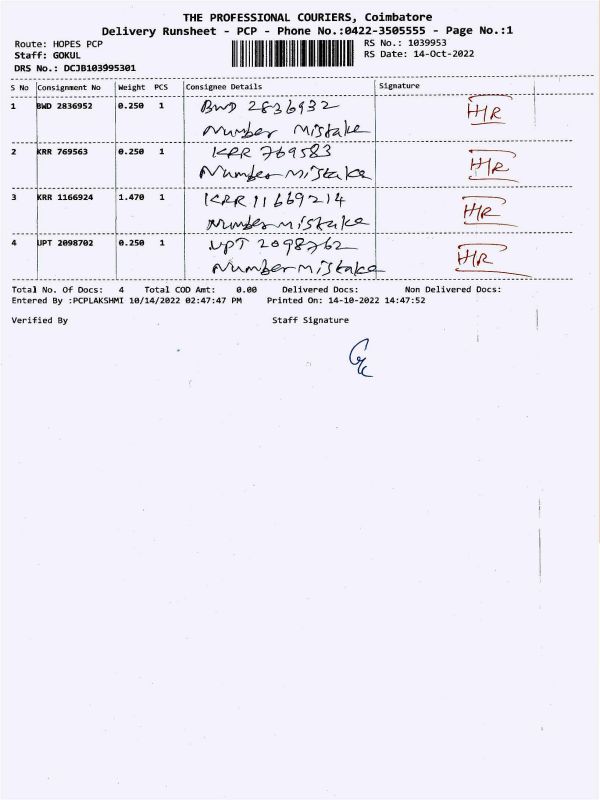 THE PROFESSIONAL COURIERS, Coimbatore
Delivery Runsheet - PCP - Phone No.:0422-3505555 - Page No.:1
Route: HOPES PCP RS No.: 1039953
Staff: GOKUL RS Date: 14-Oct-2022
DRS No.: DCJB103995301
S No Consignment No Weight PCS Consignee Details Signature
1 BWD 2836952 0.250 1 BWD 2836932 HR
Number Mistake
2 KRR 769563 0.250 1 KRR 769583 HR
Number Mistake
3 KRR 1166924 1.470 1 KRR 11669214 HR
Number mistake
4 UPT 2098702 0.250 1 UPT 2098762 HR
Number mistake
Total No. Of Docs: 4 Total COD Amt: 0.00 Delivered Docs: Non Delivered Docs:
Entered By :PCPLAKSHMI 10/14/2022 02:47:47 PM Printed On: 14-10-2022 14:47:52
Verified By Staff Signature